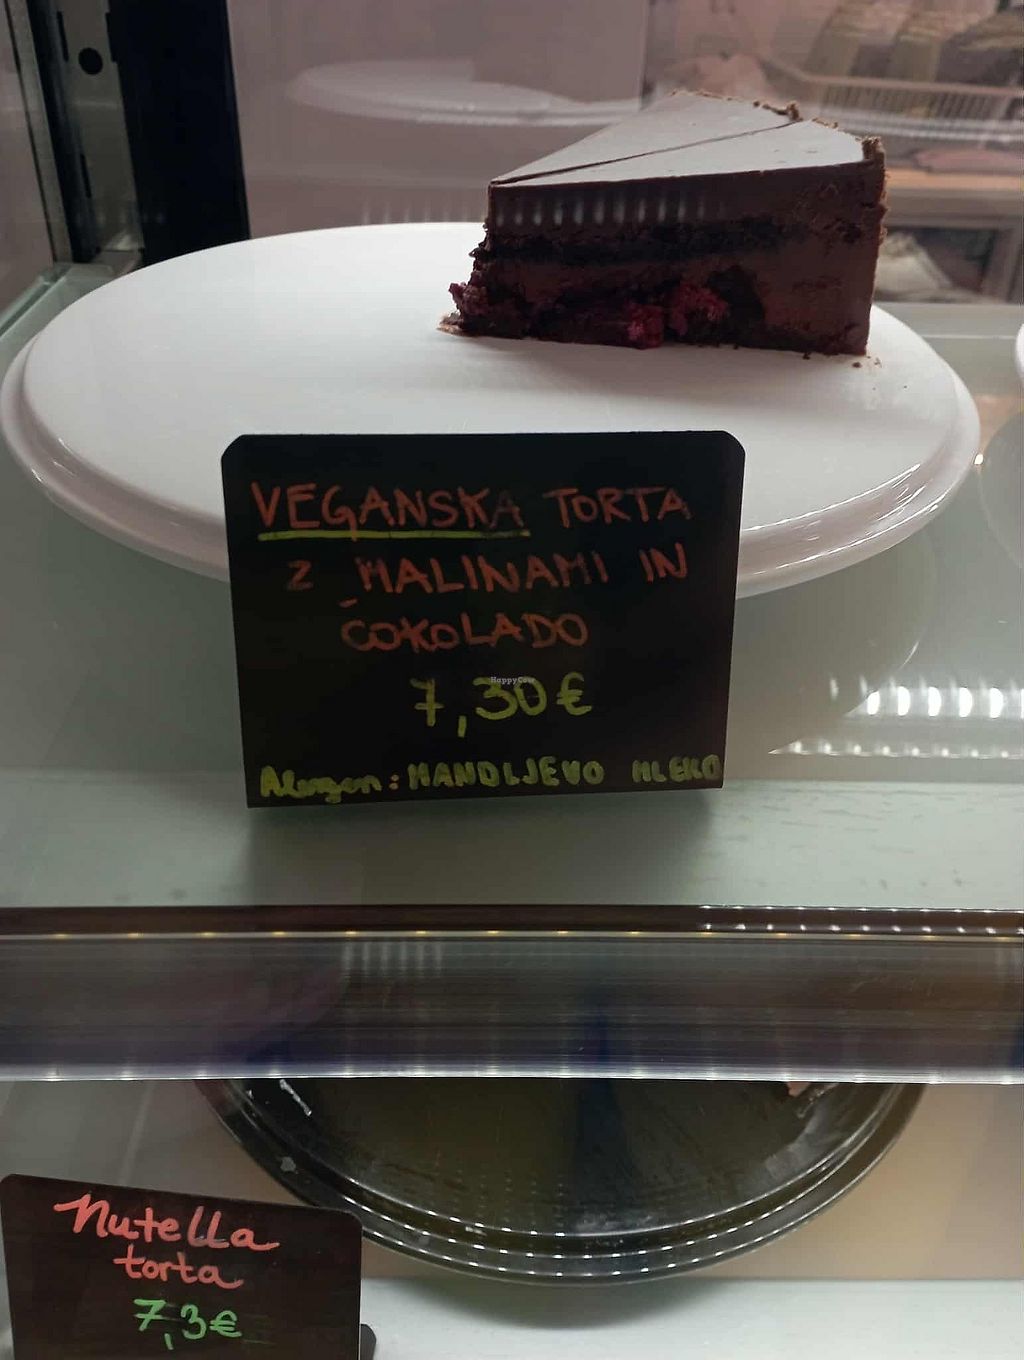 VEGANSKA TORTA
Z MALINAMI IN
ČOKOLADO
HappyCow
7,30€
Alergen: MANDLJEVO MLEKO
Nutella
torta
7,3€